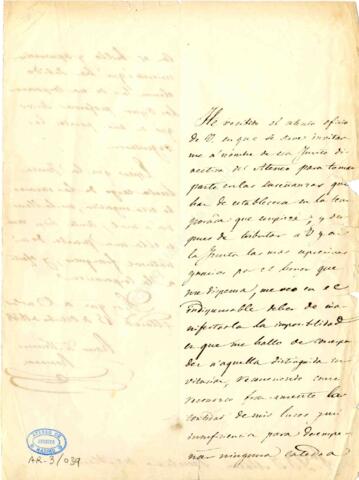 He recibido el atento oficio
de V. en que se sirve invitar
me á nombre de esa Junta di
rectiva del Ateneo para tomar
parte en las enseñanzas que
han de establecerse en la tem
porada que empieza; y des
pues de tributar á V. y á
la Junta las mas espresivas
gracias por el honor que
me dispensa, me veo en el
indispensable deber de ma
nifestarla la imposibilidad
en que me hallo de correspon
der á aquella distinguida in
vitacion, reconociendo como
reconozco francamente la
cortedad de mis luces y mi
insuficiencia para desempe
ñar ninguna catedra
ATENEO DE
MADRID
AR-3/039